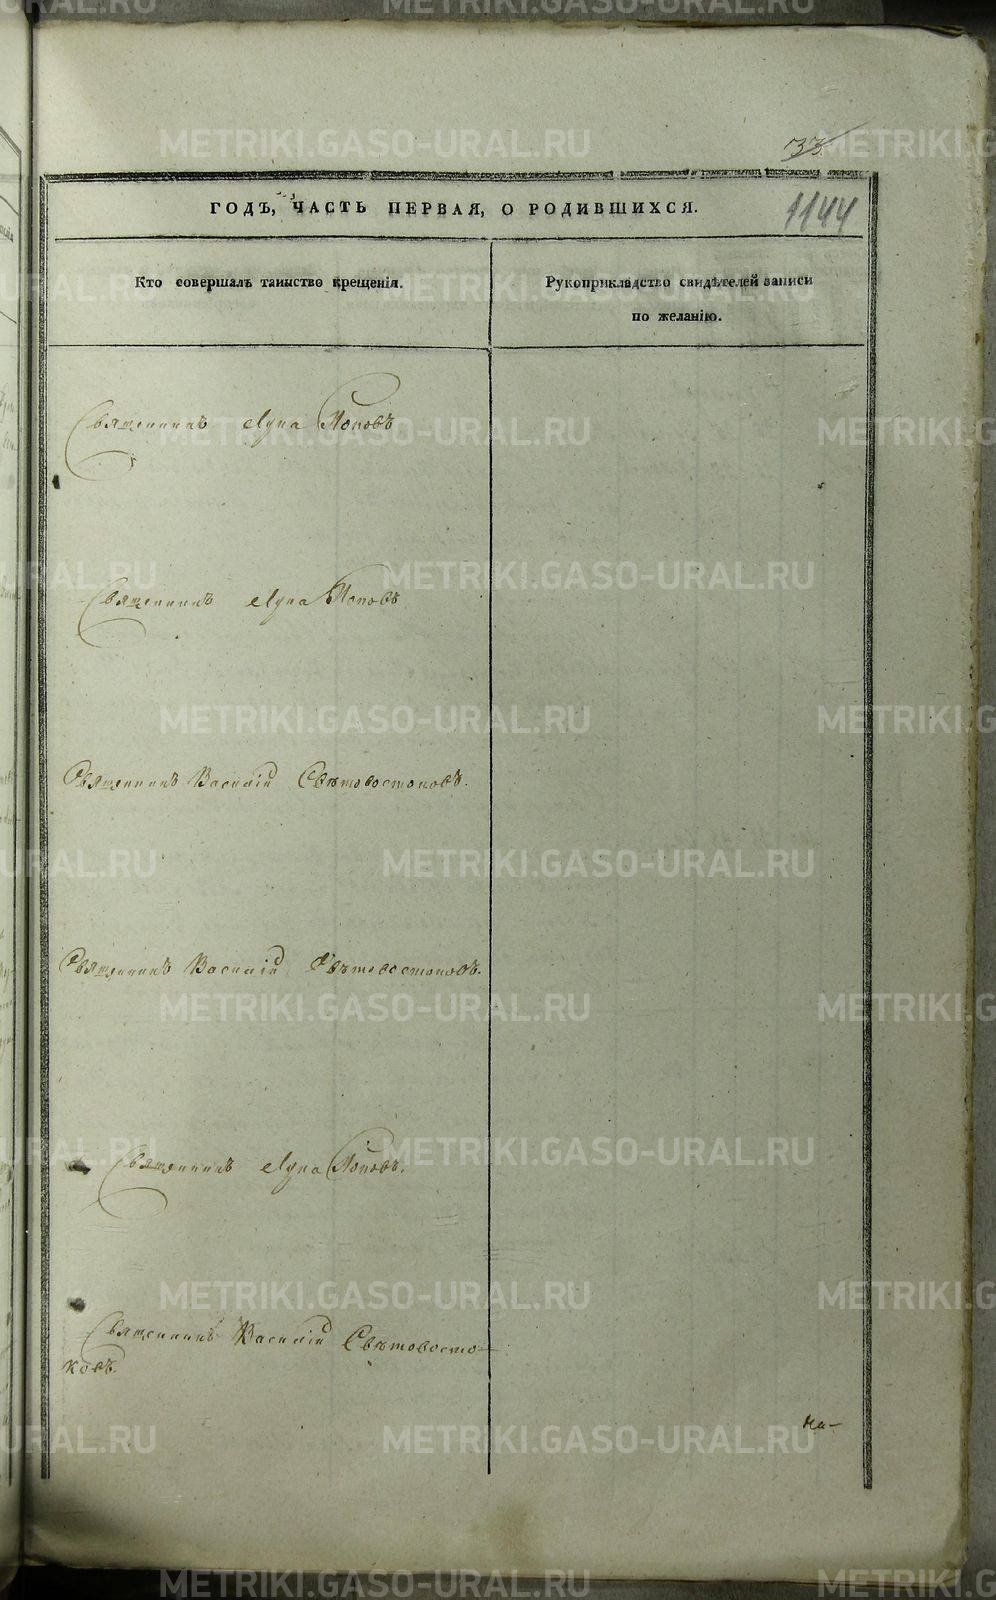 33
1144
ГОДЪ, ЧАСТЬ ПЕРВАЯ, О РОДИВШИХСЯ.
Кто совершалъ таинство крещенія.
Рукоприкладство свидѣтелей записи
по желанію.
Священникъ Лука Поповъ
Священникъ Лука Поповъ
Священникъ Василій Свѣтовостоковъ.
Священникъ Василій Свѣтовостоковъ.
Священникъ Лука Поповъ.
Священникъ Василій Свѣтовосто-
ковъ.
На-
METRIKI.GASO-URAL.RU